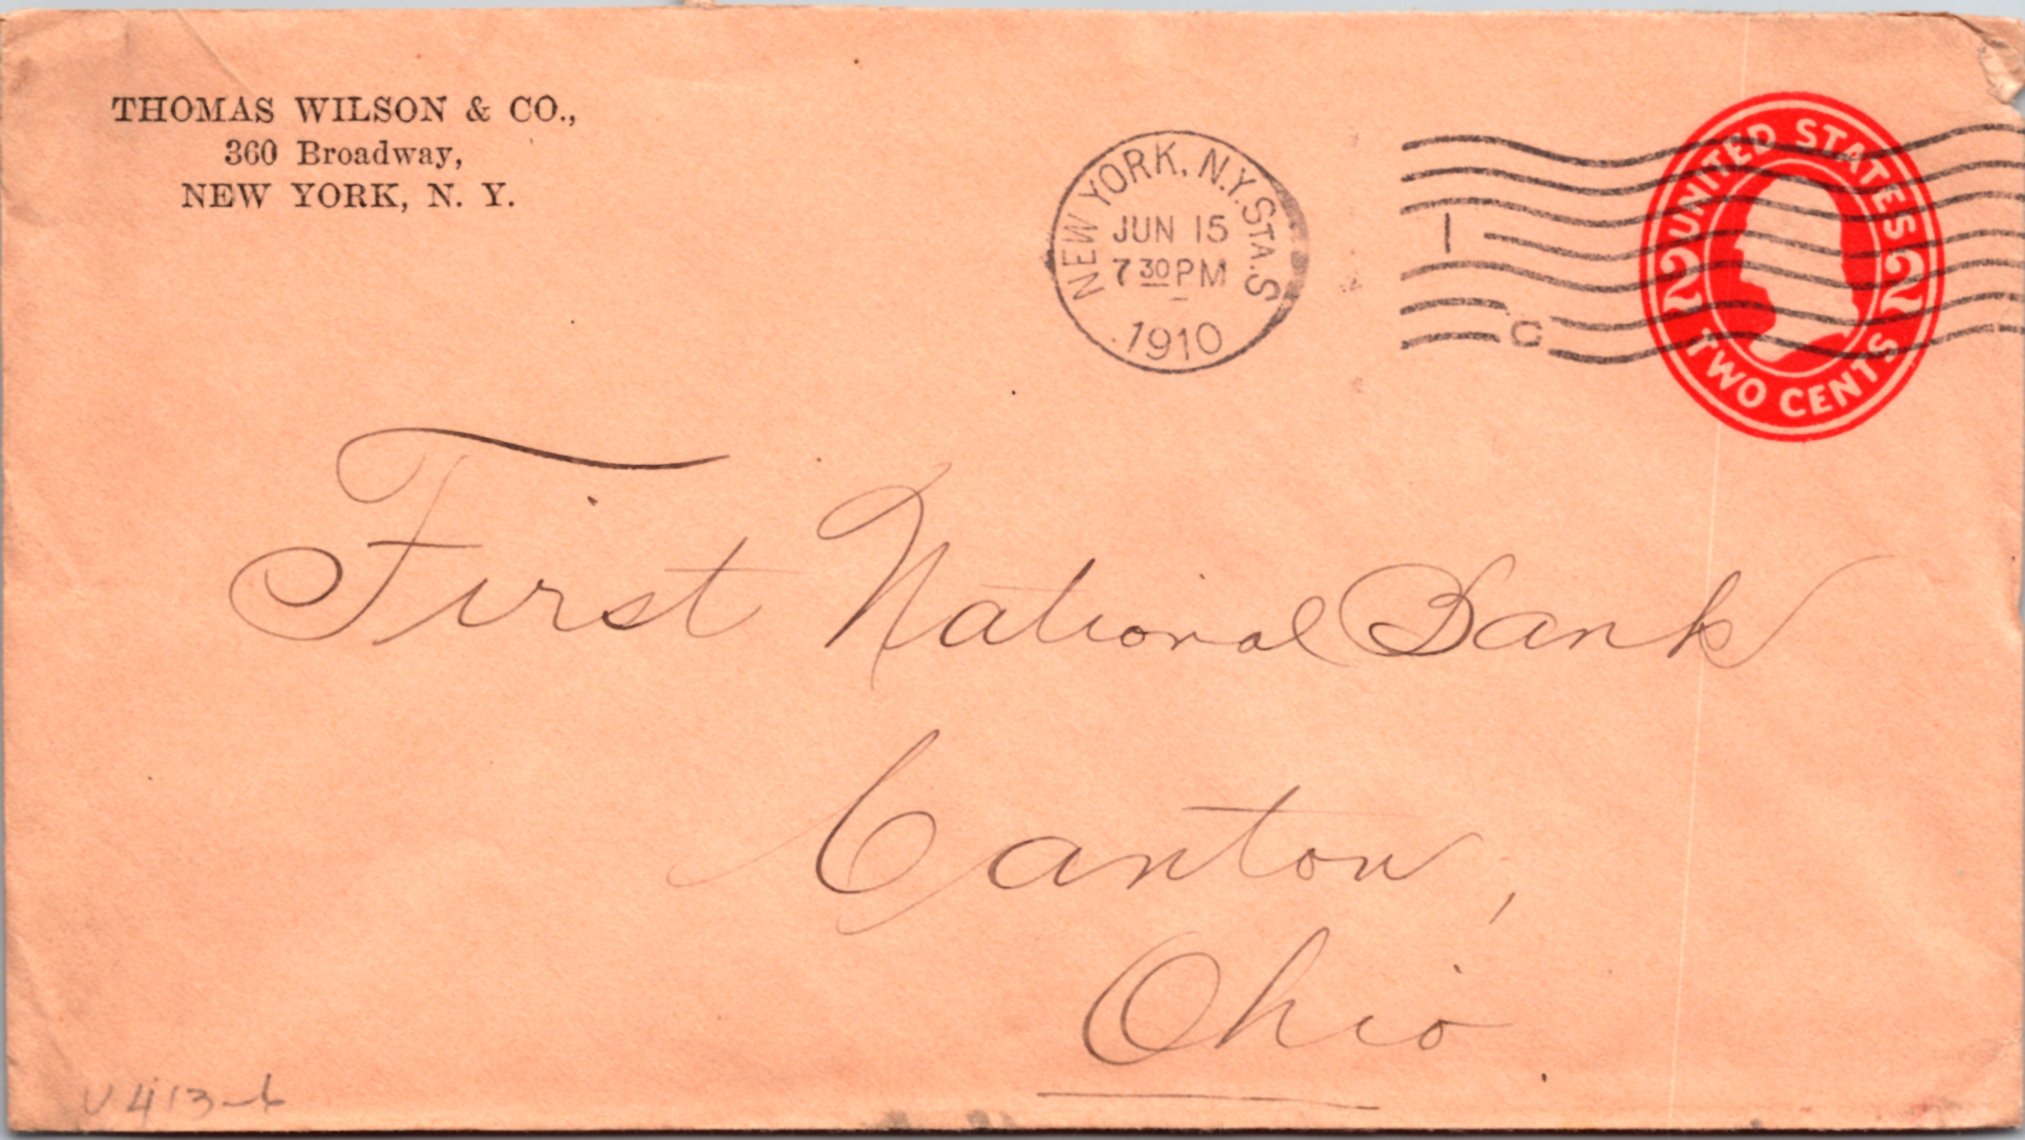 THOMAS WILSON & CO.,
360 Broadway,
NEW YORK, N. Y.
NEW YORK, N.Y. STA. S
JUN 15
7 30 PM
1910
1
C
UNITED STATES
2 2
TWO CENTS
First National Bank
Canton,
Ohio
U413-6